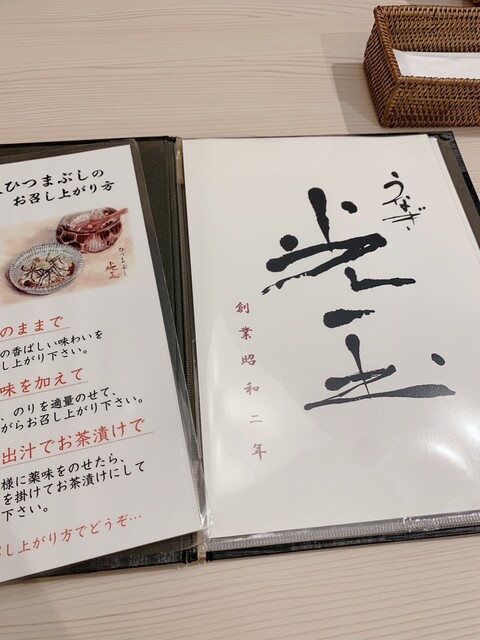 ひつまぶしの
お召し上がり方
のままで
の香ばしい味わいを
し上がり下さい。
味を加えて
、のりを適量のせて、
がらお召し上がり下さい。
出汁でお茶漬けで
様に薬味をのせたら、
を掛けてお茶漬けにして
下さい。
し上がり方でどうぞ…
うなぎ
炭玉
創業昭和二年